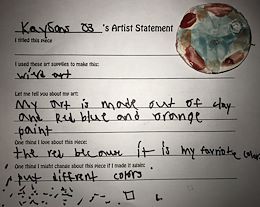 Kaydans 's Artist Statement
I titled this piece:
I used these art supplies to make this:
wire art
Let me tell you about my art:
My art is made out of clay
and red blue and orange
paint
One thing I love about this piece:
the red because it is my favriote color
One thing I might change about this piece if I made it again:
put different colors